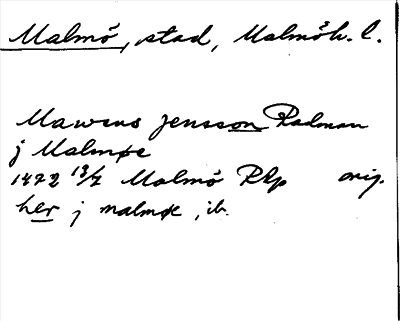 Malmö, stad, Malmöh. l.
Mawrus jensson Radman
j Malmøe
1472 13/7 Malmö RAp orig.
her j malmøe, ib.